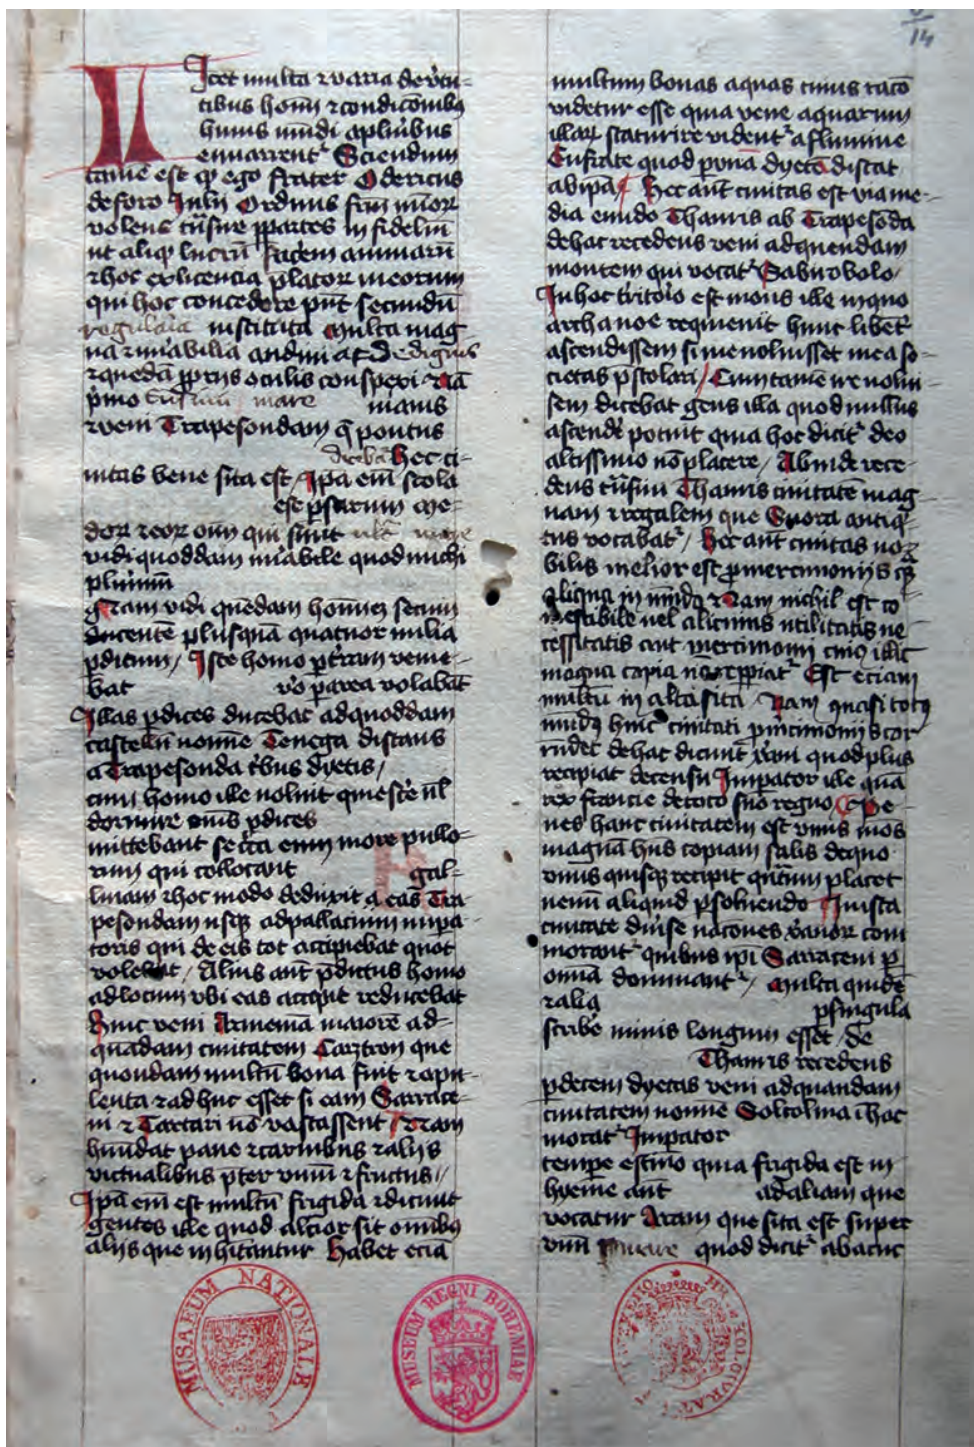 Licet multa ⁊ varia de v̾tu-
tibus hoīm ⁊ condicōibus
huius mūdi a pluribus
enarrent᷑ Sciendum
tamē est qꝫ ego frater Odericus
de foro Julii Ordinis frm̄ miōrꝝ
volens trāsire ꝑ partes infideliū
ut aliqꝫ lucrū facerē animarū
⁊ hoc ex licencia p̄latorꝝ meorum
qui hoc concedere pn̄t secundū
regularia instituta Multa mag
na ⁊ mirabilia audiui atqꝫ digna
⁊ quedā ꝓprijs oculis conspexi Nā
p̄mo mare maius
⁊ veni Trapesondam q̄ pontus
dicebat᷑ Hec ci-
uitas bene sita est / Ipā em̄ scola
est persarum me-
dorꝝ ⁊ eorꝝ om̄i qui sunt ult̾ mare
vidi quoddam mirabile quod michi
plurimū
gratum vidi quēdam homīnez secum
ducentē plusquā quatuor milia
ꝑdicum / Iste homo ꝑ terram venie-
bat v̾o ꝑ area volabāt
Illas ꝑdices ducebat ad quoddam
castellū nomīe Tenega distans
a Trapesonda tribus dyetis /
cum homo ille voluit quiescere vl̄
dormire om̄s ꝑdices
mittebant se circa eum more pullo-
rum qui collocant gal-
linam ⁊ hoc modo deduxit eas Tra
pesondam usqꝫ ad pallacium impera
toris qui de eis tot accipiebat quot
volebat / Alias aut̄ p̄dictus homo
ad locum vbi eas accepit reducebat
Hinc veni Armeniā maiorē ad
quādam ciuitatem Carztron que
quondam multū bona fuit ⁊ opu-
lenta ⁊ adhuc esset si eam Sarrace-
ni ⁊ Tartari nō vastassent / Nam
habūdat pane ⁊ carnibus ⁊ alijs
victualibus preter vinū ⁊ fructus /
Ipā em̄ est multū frigida ⁊ dicunt
gentes ille quod alcior sit omnibus
alijs que inhitantur Habet eciā
multum bonas aquas cuius racō
videtur esse quia vene aquarum
illarꝝ scaturire vident᷑ a flumine
Eufrate quod ꝑ unā dyetā distat
ab ipā / Hec aut̄ ciuitas est via me-
dia eundo Thauris ab Trapesōda
de hac recedens veni ad quendam
montem qui vocat᷑ Sabisobolo /
In hoc tritorio est mons ille in quo
archa noe requieuit hunc libent̾
ascendissem si me voluisset mea so-
cietas p̄stolari / Cum tamē ire volui-
sem dicebat gens illa quod nullus
ascendere potuit quia hoc dicit᷑ deo
altissimo nō placere / Abinde rece-
dens trāsiui Thauris ciuitatē mag
nam ⁊ regalem que Suora antiqui-
tus vocabat᷑ / Hec aut̄ ciuitas no-
bilis melior est ꝓ mercimonijs quam
aliqua in mūdo Nam nichil est co
mestibile vel alicuius utilitatis ne
cessitatis aut mercimonij cuius illic
magna copia nō reperiat᷑ Est eciam
multū in alta sita / Nam quasi totus
mūdus huic ciuitati ꝑ mercimonijs cor
rūdet de hac dicunt xp̄iani quod plus
recipiat de censu Imperator ille quā
rex francie de toto suo regno / Pe
nes hanc ciuitatem est vnus mōs
magnā hn̄s copiam salis de quo
vnus quisqꝫ recipit qn̄tum placet
nemini aliquid ꝑsoluendo In ista
ciuitate diuerse nacōnes xp̄ianorꝝ com
morant᷑ quibus ip̄i Sarraceni ꝑ
omnia dominant᷑ / Multa quidē
⁊ alia ꝑ singula
scribere nimis longum esset / de
Thauris recedens
ꝑ decem dyetas veni ad quandam
ciuitatem nomīe Soltolina in hac
morat᷑ Imperator
tempore estiuo quia frigida est in
hyeme aut̄ ad aliam que
vocatur Axam que sita est super
vnū mare quod dicit᷑ abacuc
MUSAEUM NATIONALE
MUSEUM REGNI BOHEMIAE